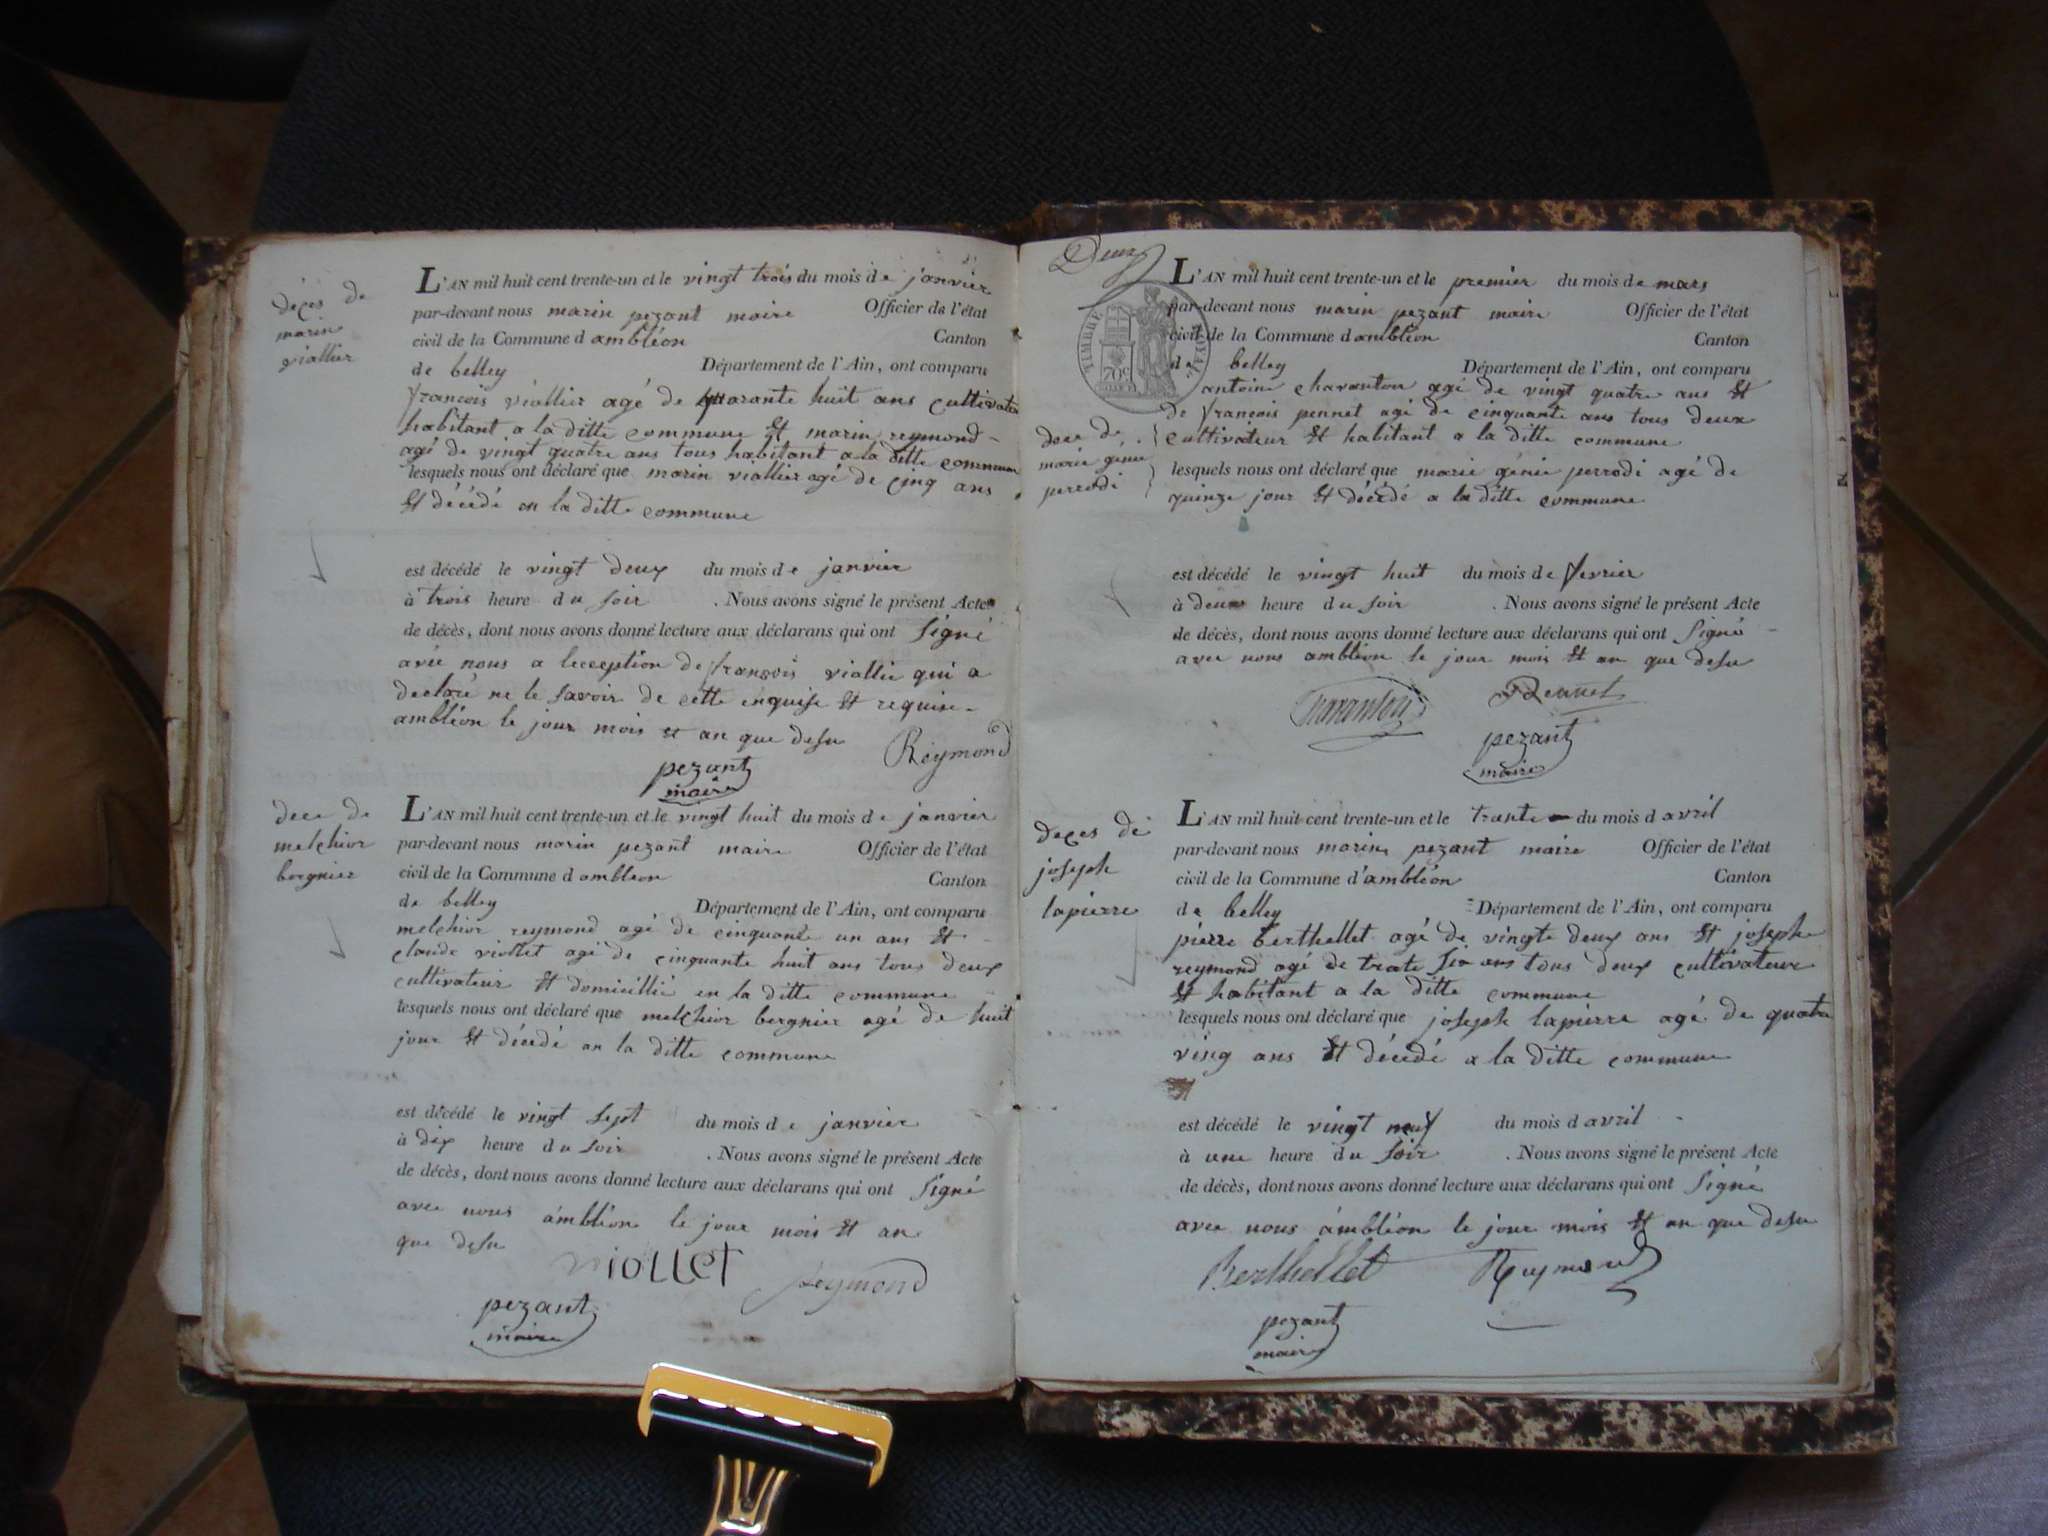 déces de
marin
viallier
L'AN mil huit cent trente-un et le vingt trois du mois de janvier
par-devant nous marin pezant maire Officier de l'état
civil de la Commune d ambléon Canton
de belley Département de l'Ain, ont comparu
francois viallier agé de quarante huit ans cultivate
habitant a la ditte commune Et marin reymond -
agé de vingt quatre ans tous habitant a la ditte commune
lesquels nous ont déclaré que marin viallier agé de cinq ans
Et décédé en la ditte commune
est décédé le vingt deux du mois de janvier
à trois heure du soir . Nous avons signé le présent Acte
de décès, dont nous avons donné lecture aux déclarans qui ont signé
avec nous a leception de françois viallie qui a
declaré ne le savoir de cette enquise Et requise -
ambléon le jour mois et an que desu
Reymond
pezant
maire
dece de
melchior
bergnier
L'AN mil huit cent trente-un et le vingt huit du mois de janvier
par-devant nous marin pezant maire Officier de l'état
civil de la Commune d ambleon Canton
de belley Département de l'Ain, ont comparu
melchior reymond agé de cinquante un ans Et
claude viollet agé de cinquante huit ans tous deux
cultivateur Et domicillié en la ditte commune
lesquels nous ont déclaré que melchior bergnier agé de huit
jour Et décédé en la ditte commune
est décédé le vingt sept du mois de janvier
à dix heure du soir . Nous avons signé le présent Acte
de décès, dont nous avons donné lecture aux déclarans qui ont signé
avec nous ambléon le jour mois Et an
que desu
viollet reymond
pezant
maire
Deux
TIMBRE ROYAL
70c
L'AN mil huit cent trente-un et le premier du mois de mars
par-devant nous marin pezant maire Officier de l'état
civil de la Commune d ambléon Canton
de belley Département de l'Ain, ont comparu
antoine charanton agé de vingt quatre ans Et
de françois pennet agé de cinquante ans tous deux
dece de
marie genie
perrodi
cultivateur Et habitant a la ditte commune
lesquels nous ont déclaré que marie génie perrodi agé de
quinze jour Et décédé a la ditte commune
est décédé le vingt huit du mois de fevrier
à deux heure du soir . Nous avons signé le présent Acte
de décès, dont nous avons donné lecture aux déclarans qui ont signé
avec nous ambléon le jour mois Et an que desu
pezant
maire
deces de
joseph
lapierre
L'AN mil huit cent trente-un et le trante du mois d avril
par-devant nous marin pezant maire Officier de l'état
civil de la Commune d'ambléon Canton
de belley Département de l'Ain, ont comparu
pierre berthellet agé de vingte deux ans Et joseph
reymond agé de trate six ans tous deux cultivateur
Et habitant a la ditte commune
lesquels nous ont déclaré que joseph lapierre agé de quatre
ving ans Et décédé a la ditte commune
est décédé le vingt neuf du mois d avril
à une heure du soir . Nous avons signé le présent Acte
de décès, dont nous avons donné lecture aux déclarans qui ont signé
avec nous ambléon le jour mois Et an que desu
Berthellet Reymond
pezant
maire